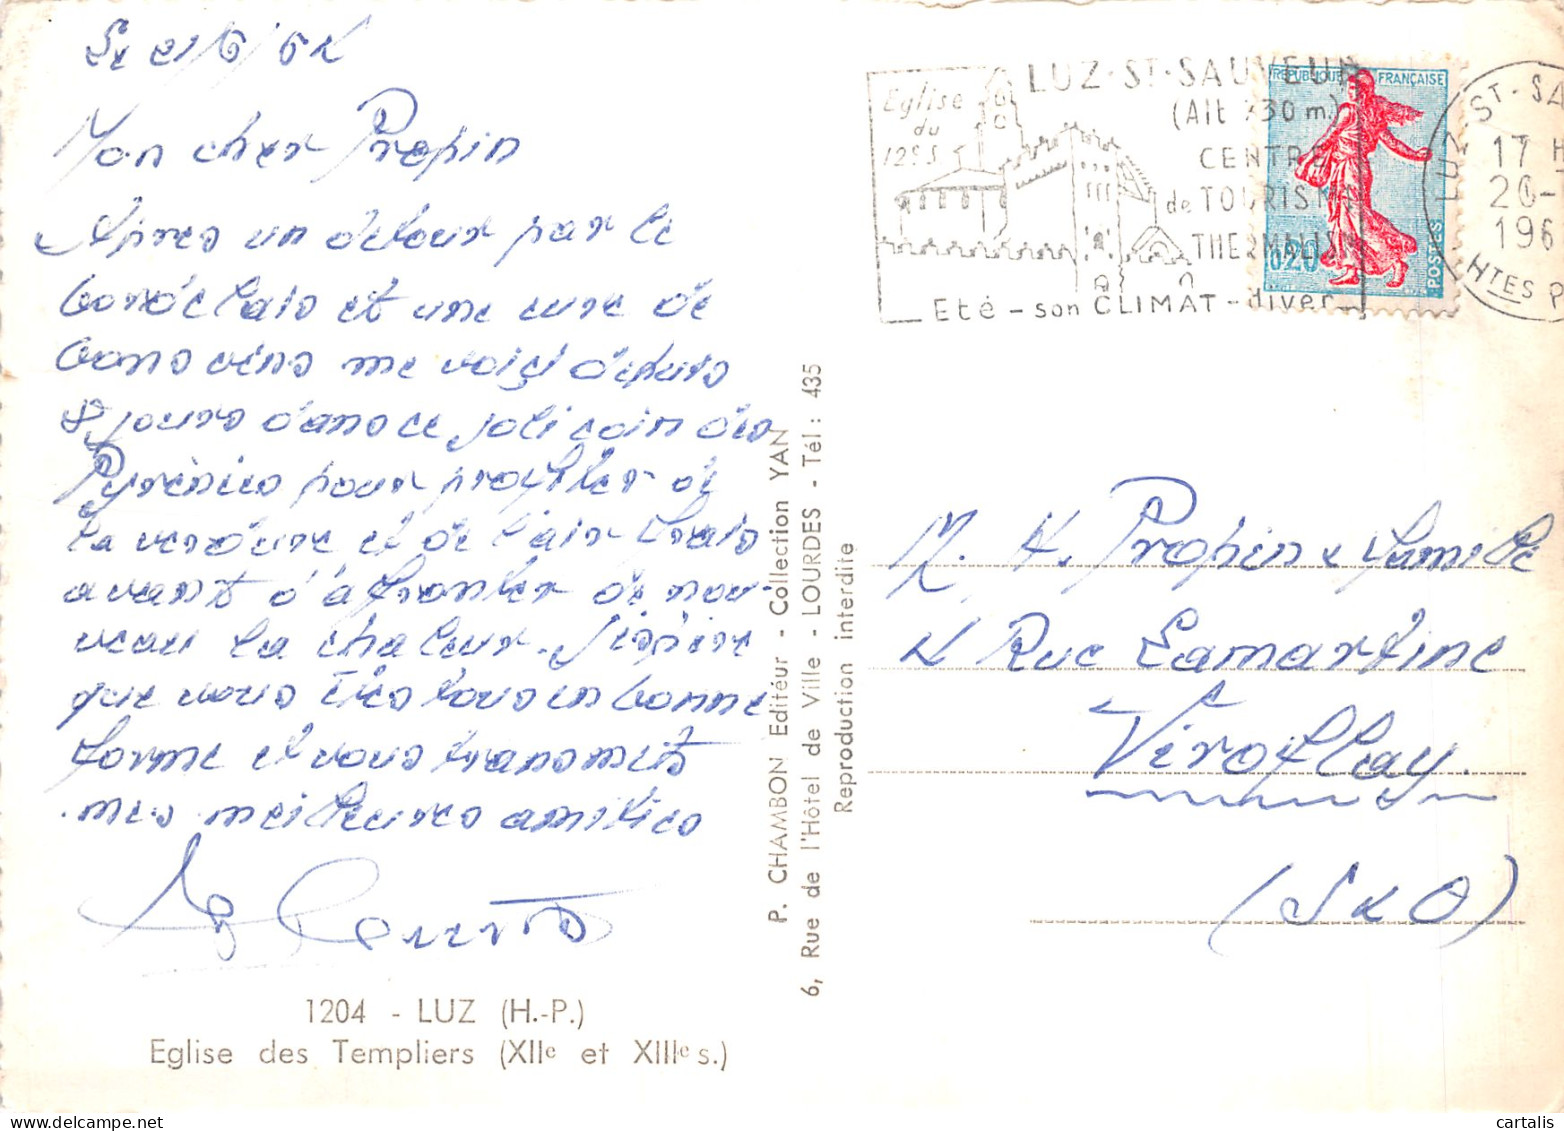 Mon cher Propin
Après un détour par le
bordelais et une cure de
bons vins me voici depuis
8 jours dans ce joli coin des
Pyrénées pour profiter de
la verdure et de l'air frais
avant d'affronter de nou-
veau la chaleur. J'espère
que vous êtes tous en bonne
forme et vous transmets
mes meilleures amitiés
1204 - LUZ (H.-P.)
Eglise des Templiers (XIIe et XIIIe s.)
P. CHAMBON Editéur - Collection YAN
6, Rue de l'Hôtel de Ville - LOURDES - Tél : 435
Reproduction interdite
Eglise
du
12e S
LUZ-ST-SAUVEUR
(Alt 730 m.)
CENTRE
de TOURISM
THERMALIS
Eté - son CLIMAT - hiver
REPUBLIQUE FRANÇAISE
0,20
POSTES
LUZ-ST-SA
17 H
20-
196
HTES P
M. H. Propin & famille
4 Rue Lamartine
Viroflay
(S & O)